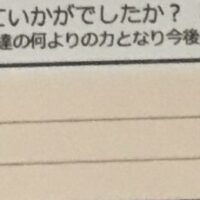 ていかがでしたか?
達の何よりの力となり今後